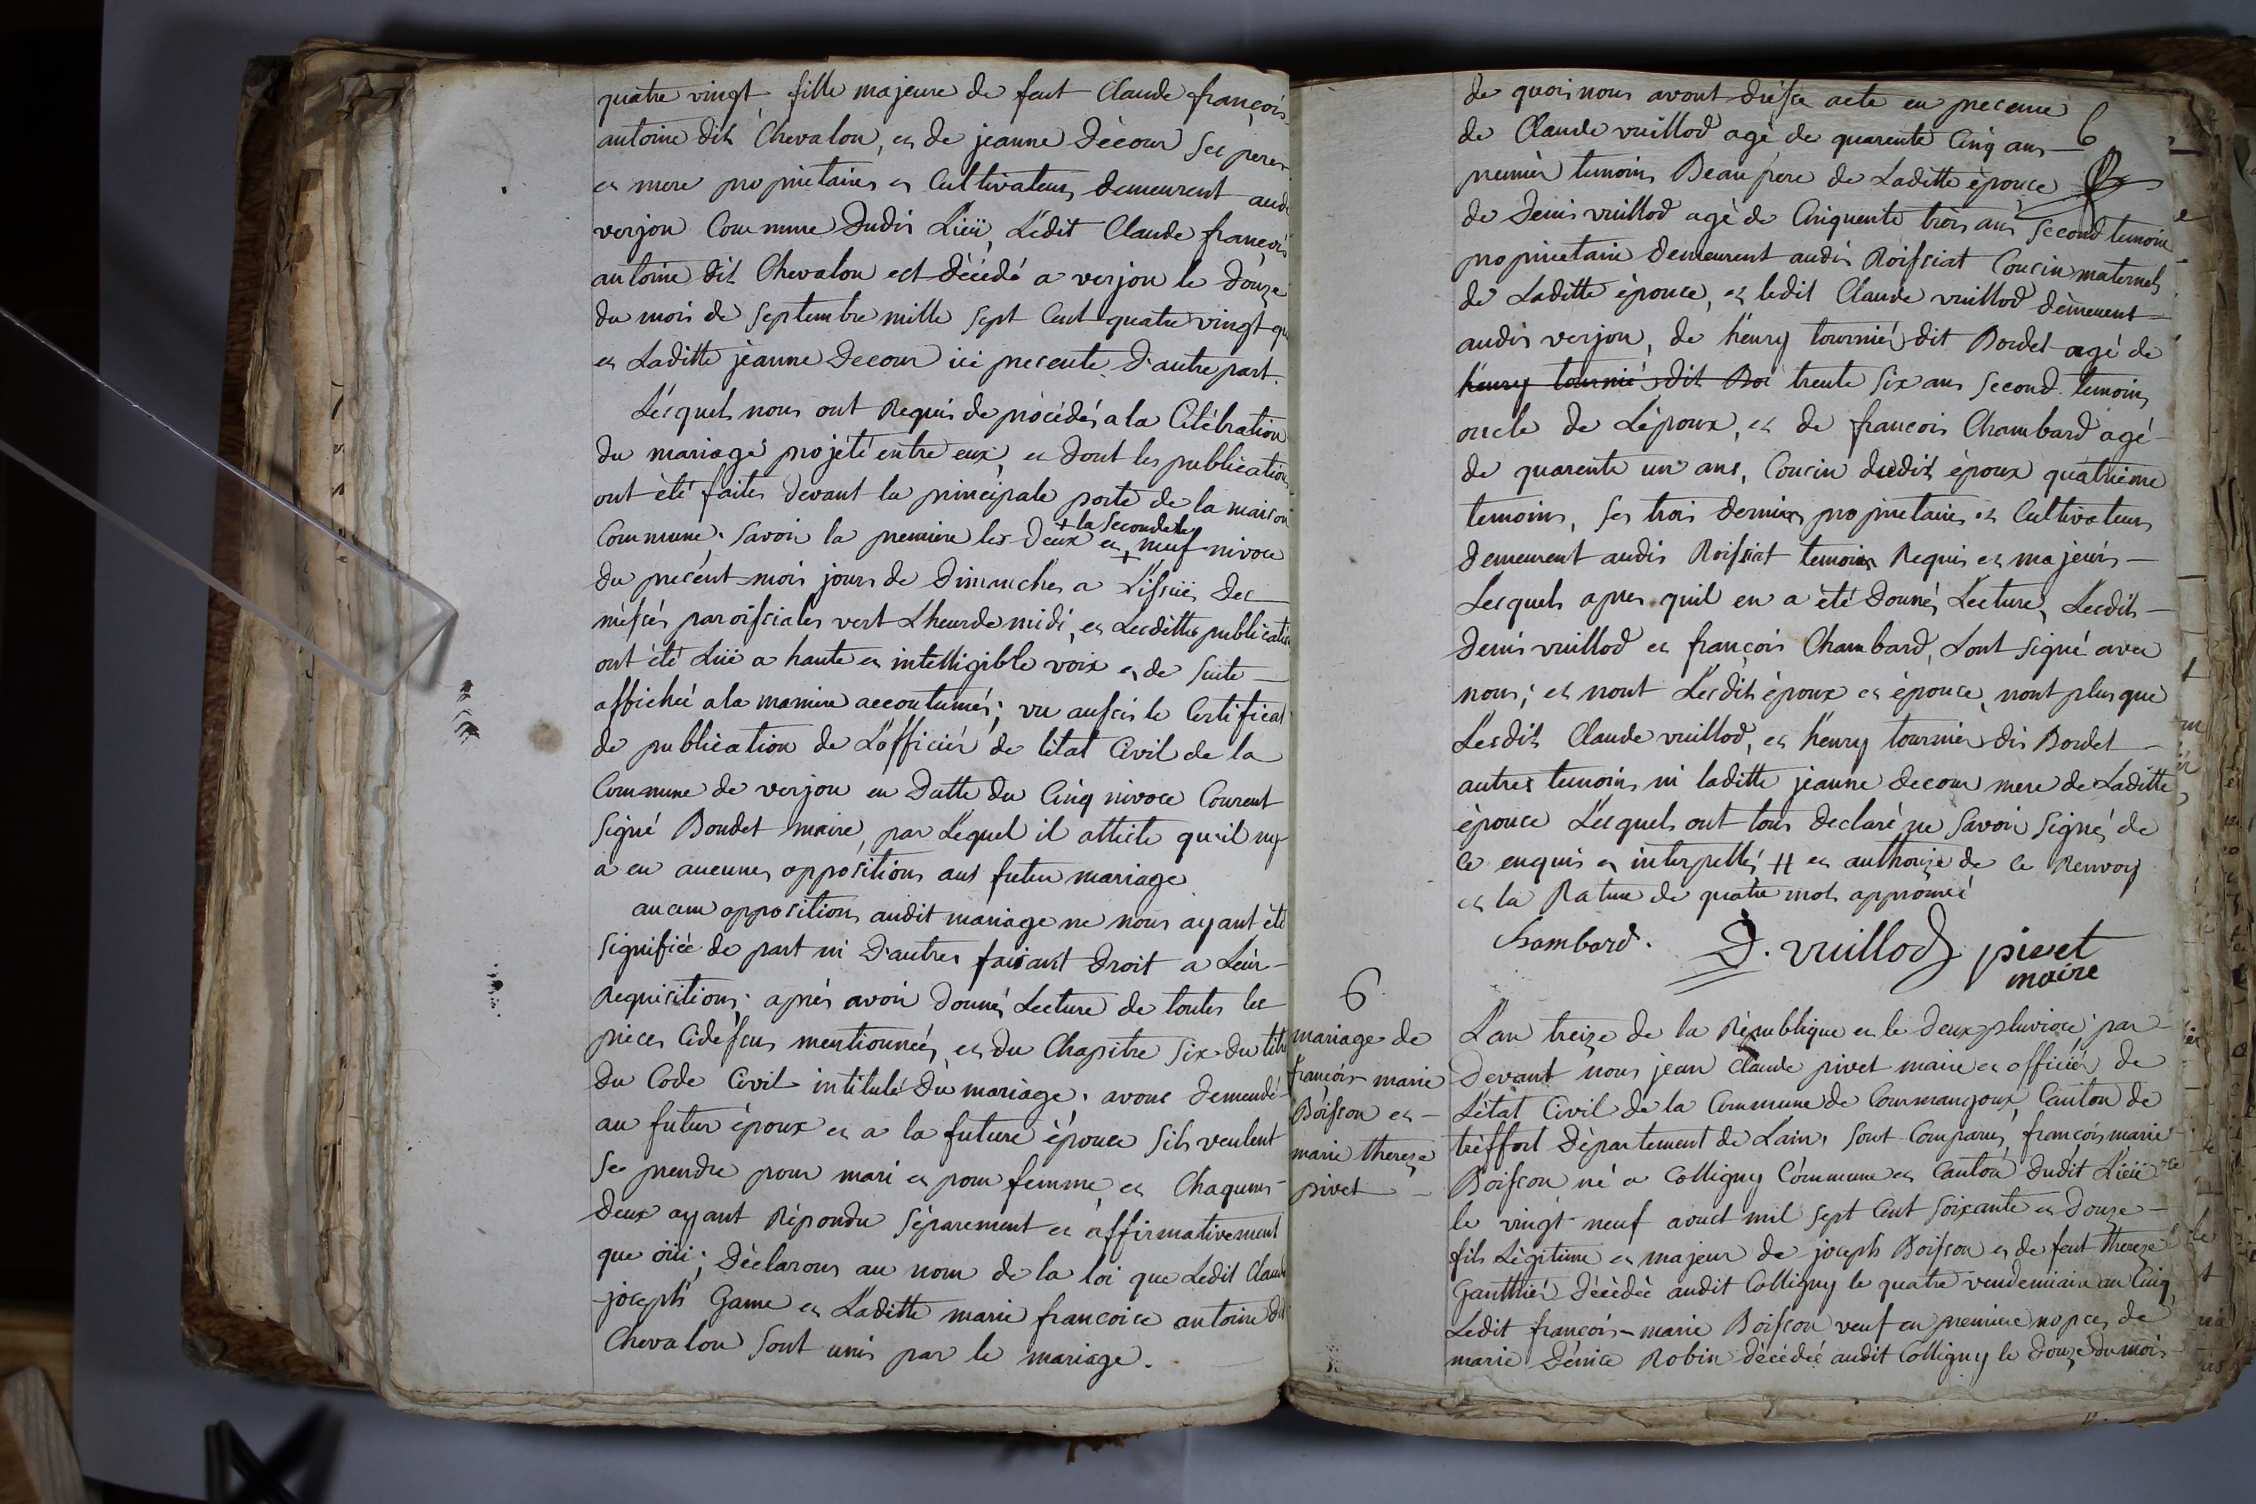 quatre vingt, fille majeure de feut Claude françois
antoine dit Chevalon, et de jeanne Dècour ses peres
et mere proprietaires et Cultivateurs demeurent audi
verjon Commune dudis Lieü, Lédit Claude françois
antoine dit Chevalon est décédé a verjon le douze
du mois de Septembre mille Sept Cent quatre vingt
et Laditte jeanne Decour ici presente d'autre part.
Lésquels nous ont Requis de procédés a la Célébration
du mariage projété entre eux, et dont les publications
ont été faites devant la principale porte de la maison
Commune; Savoir la premiere les deux et + la Seconde le neuf nivose
du present mois jours de Dimanches a L'issuës des
mésses paroissiales vert Lheur de midi, et Lesdittes publications
ont été Luë a haute et intelligible voix et de Suite
affichéé a la maniere accoutumés; vu aussis le Certificat
de publication de L'officiér de létat Civil de la
Commune de verjon en Datte du Cinq nivose Courent
Signé Boudet maire, par Lequel il atteste qu'il ny
a eu aucunes oppositions aus futur mariage
aucun oppositions audit mariage ne nous ayant été
Signifiéé de part ni D'autres faisant Droit a Leur
Requisitions; aprés avoir donnés Lecture de toutes les
pieces Cidéssus mentionneés, et du Chapitre Six du titre
du Code Civil intitulé du mariage. avons demendé
au futur époux et a la future épouse Sils veulent
Se prendre pour mari et pour femme et Chaquuns
deux ayant Répondu Séparement et affirmativement
que oüi; Déclarons au nom de la loi que Ledit Claude
joseph Game et Laditte marie francoise antoine dit
Chevalon Sont unis par le mariage.
de quoi nous avont dréssé acte en presence
de Claude vuillod agé de quarente Cinq ans
premiér temoins Beau pére de Laditte épouse
6
de Denis vuillod agé de Cinquente trois ans Second temoin
proprietaire demeurent audis Roissiat Cousin maternels
de Laditte épouse, et ledit Claude vuillod dèmeuent
audis verjon, de hènry tourniér dit Bordet agé de
hènry tournié dit Bor trente Six ans Second temoins
oncle de Lépoux, et de francois Chambard agé
de quarente un ans, Cousin dudit époux quatrieme
temoins, Ses trois derniers proprietaires et Cultivateurs
demeurent audis Roissiat temoins Requis et majeurs
Lesquels apres quil en a été donnés Lecture, Lesdits
denis vuillod et françois Chambard, Lont Signé avec
nous; et nont Lesdits époux et épouse, nont plus que
Lesdits Claude vuillod, et hènry tournier dis Bordet
autres temoins, ni laditte jeanne decour mere de Laditte
épouse Lésquels ont tous declaré ne Savoir Signés de
Ce enquis et interpellés # et authorize de ce Renvoy
et la Rature de quatre mots approuvéé
Chambard. D. vuillod pivet
maire
6
mariage de
françois marie
Boisson et
marie thereze
pivet
L'an treize de la République et le deux pluviose; par
Devant nous jean Claude pivet maire et officiér de
L'état Civil de la Commune de Courmangoux, Canton de
tréffort Département de Lain, Sont Comparus, françois marie
Boisson né a Colligny Cómmune et Canton dudit Lieü
le vingt neuf aoust mil Sept Cent Soixante et Douze
fils Légitime et majeur de joseph Boisson et de feut thereze
Gautthiér décèdéé audit Colligny le quatre vendemiaire an Cinq
Ledit françois-marie Boisson veuf en premiere nopces de
marie Dénice Robin décèdéé audit Colligny le douze du mois